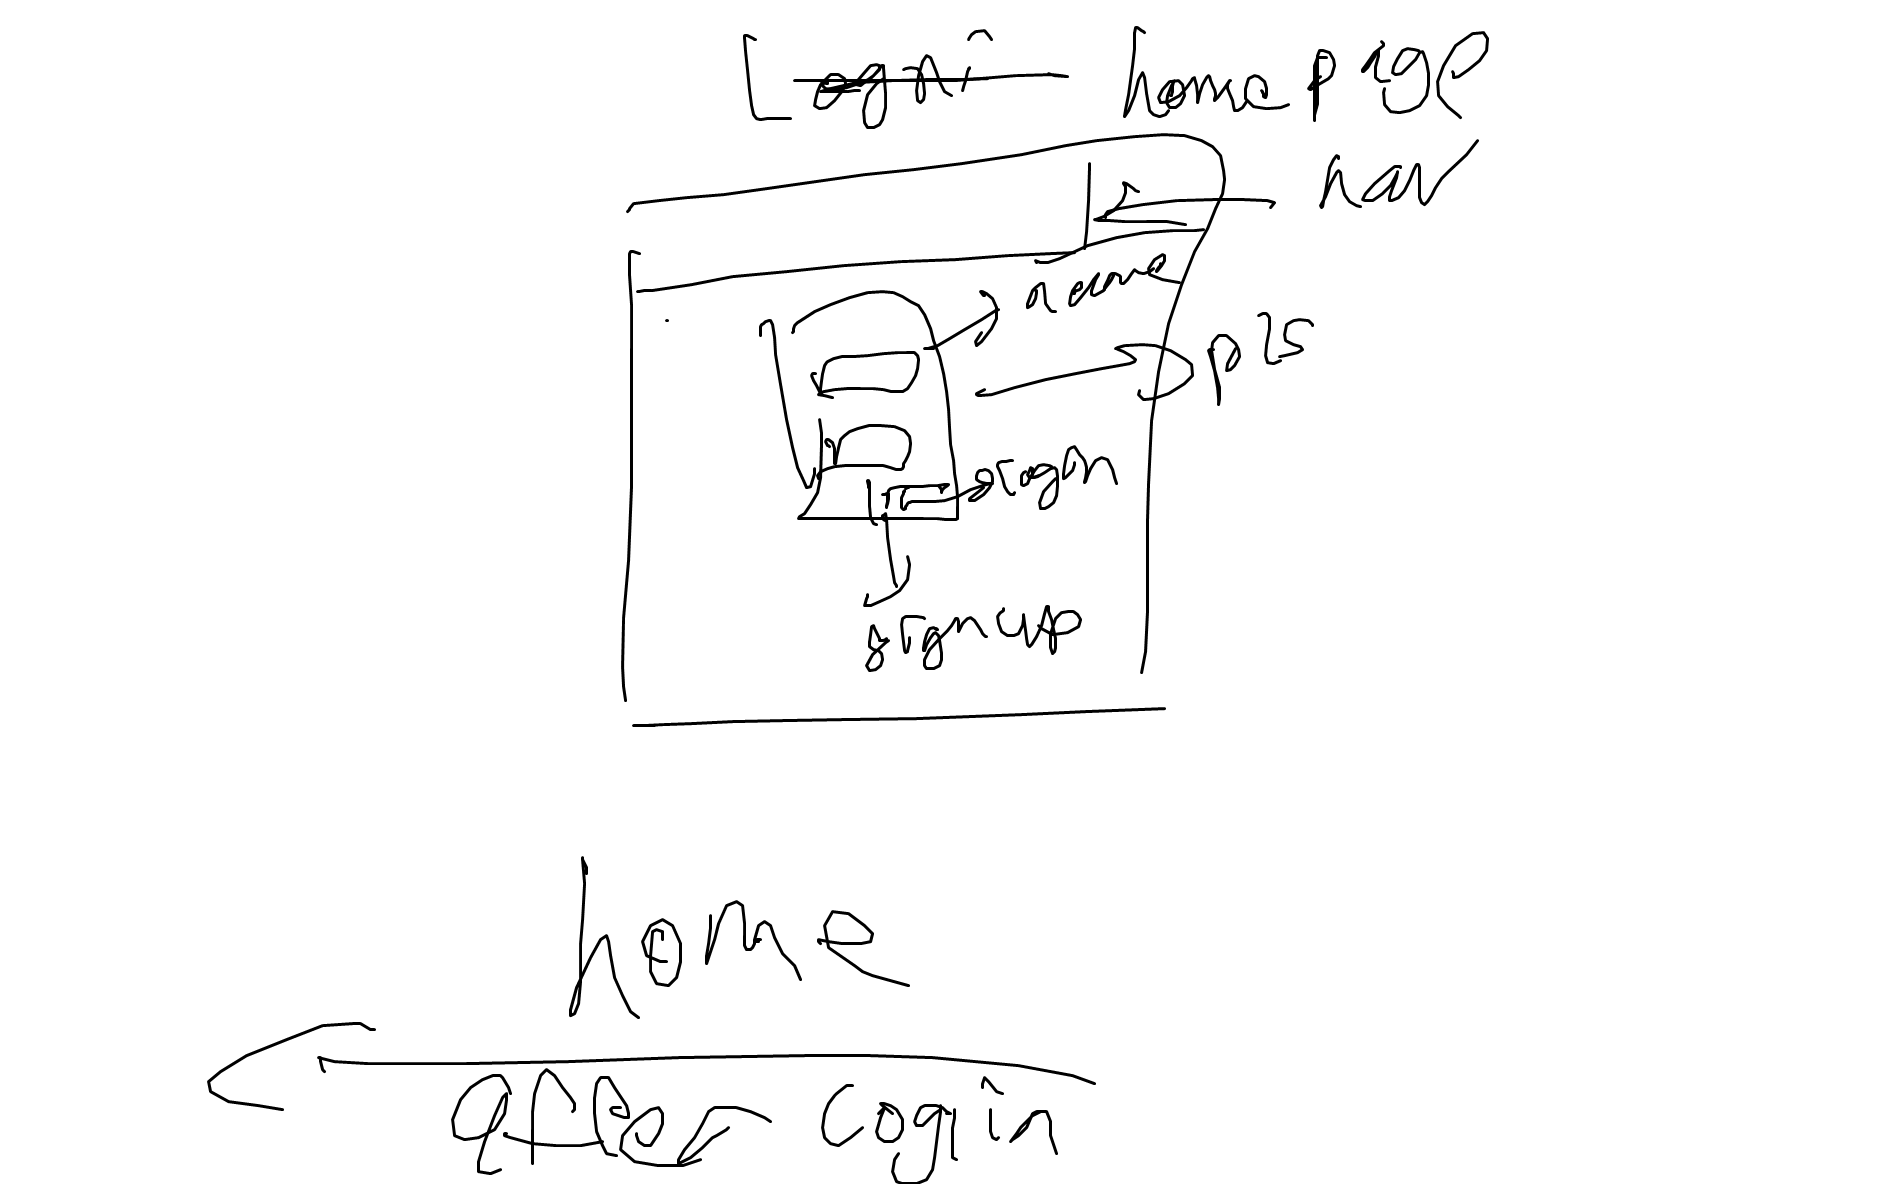 Logni home page
nav
name
pls
login
sign up
home
after login